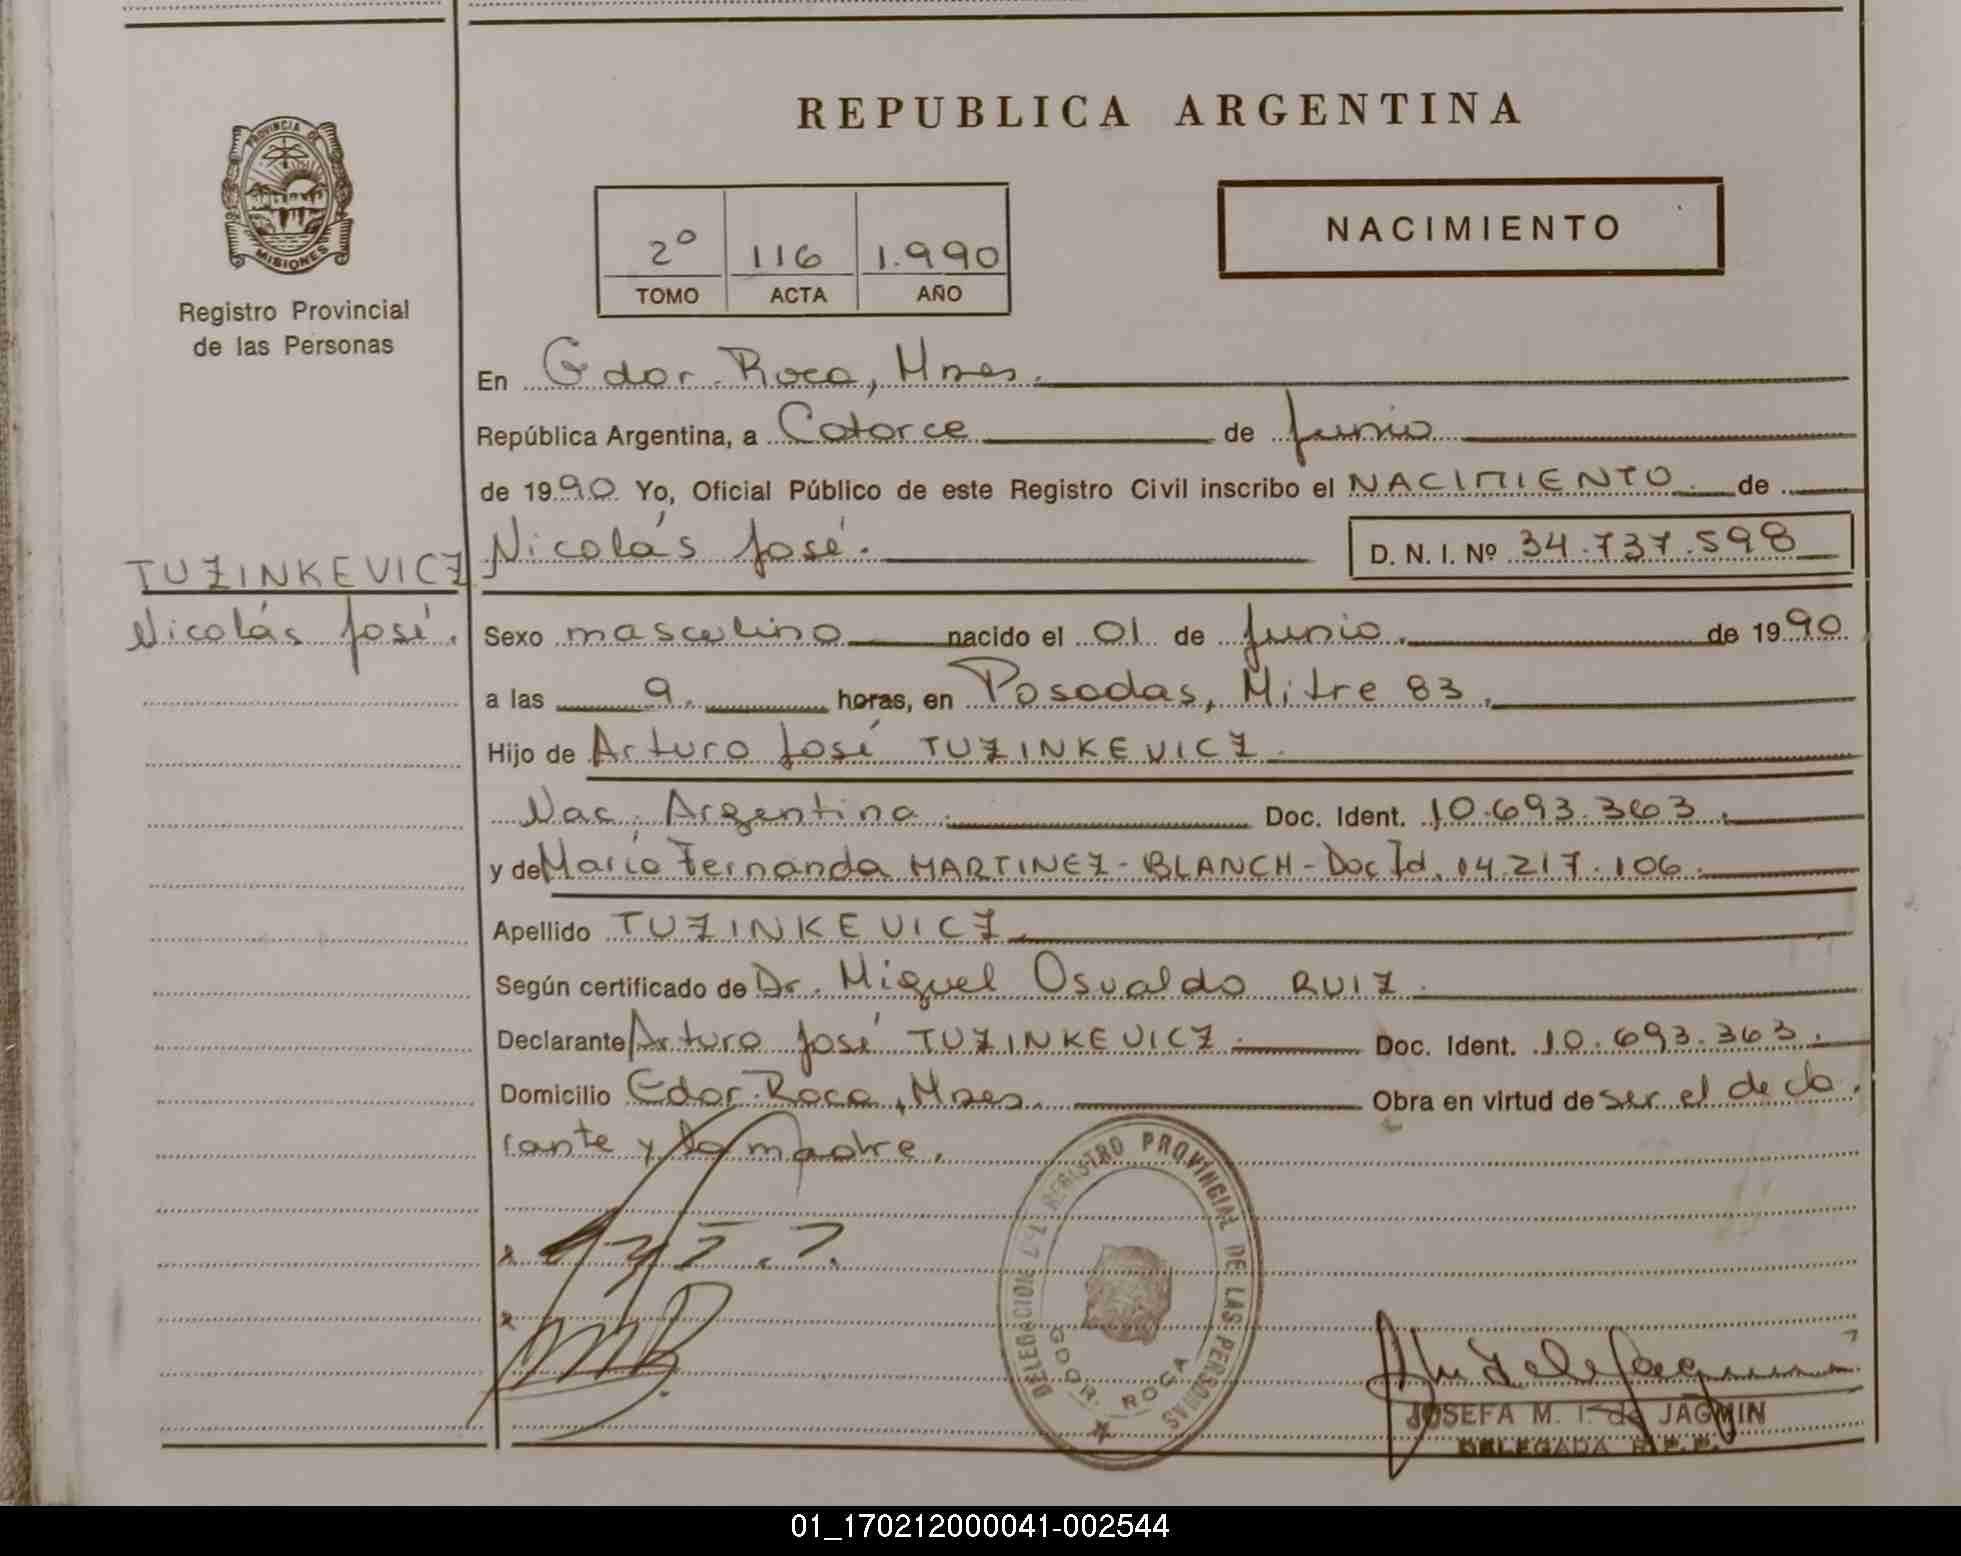 REPUBLICA ARGENTINA
PROVINCIA DE
MISIONES
Registro Provincial
de las Personas
2º 116 1.990
TOMO ACTA AÑO
NACIMIENTO
En Gdor. Roca, Mnes.
República Argentina, a Catorce de Junio
de 1990 Yo, Oficial Público de este Registro Civil inscribo el NACIMIENTO de
Nicolás José. D. N. I. Nº 34.737.598
TUZINKEVICZ
Nicolás José.
Sexo masculino nacido el 01 de Junio. de 1990
a las 9. horas, en Posadas, Mitre 83.
Hijo de Arturo José TUZINKEVICZ.
Nac. Argentina. Doc. Ident. 10.693.363.
y de María Fernanda MARTINEZ-BLANCH-Doc Id. 14.217.106.
Apellido TUZINKEVICZ.
Según certificado de Dr. Miguel Osvaldo RUIZ.
Declarante Arturo José TUZINKEVICZ. Doc. Ident. 10.693.363.
Domicilio Gdor. Roca, Mnes. Obra en virtud de ser el decla
rante y la madre.
DELEGACION DEL REGISTRO PROVINCIAL DE LAS PERSONAS
GDOR. ROCA
JOSEFA M. I. de JAGMIN
DELEGADA R.P.P.
01_170212000041-002544